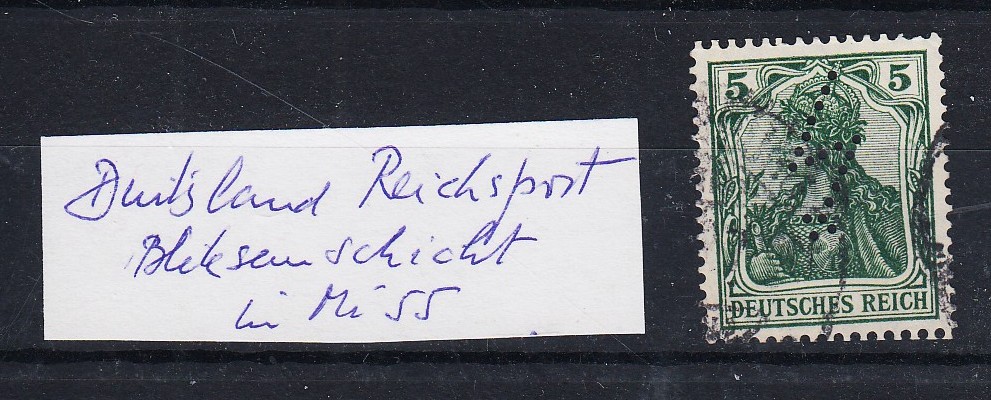 Duitsland Reichspost
Bliksemschicht
in Mi 55
5 5
DEUTSCHES REICH